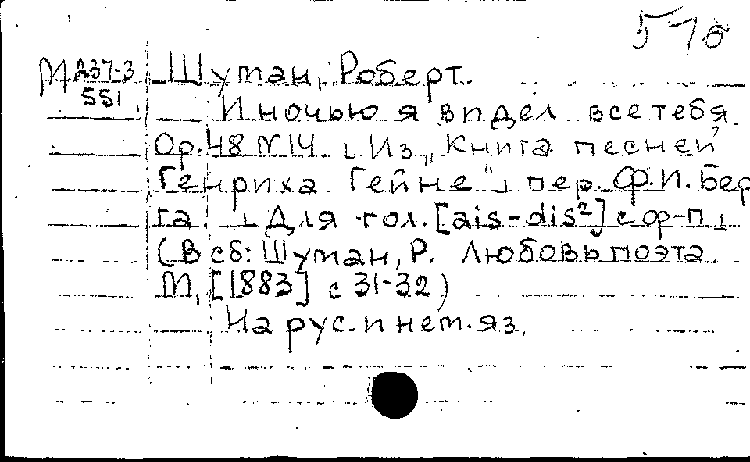 578
М А37-3
551
Шуман, Роберт.
И ночью я видел все тебя.
Ор.48 N14. [Из "Книга песней"
Генриха Гейне"] пер. Ф.И. Бер
га ] Для гол. [ais-dis²] с ф-п]
(В сб: Шуман, Р. Любовь поэта
М, [1883] с 31-32)
На рус. и нем. яз.